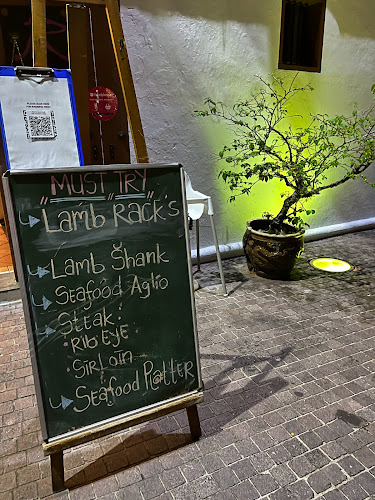 "MUST TRY"
Lamb Rack's
Lamb Shank
Seafood Aglio
Steak:
•Rib Eye
•Sirloin
Seafood Platter